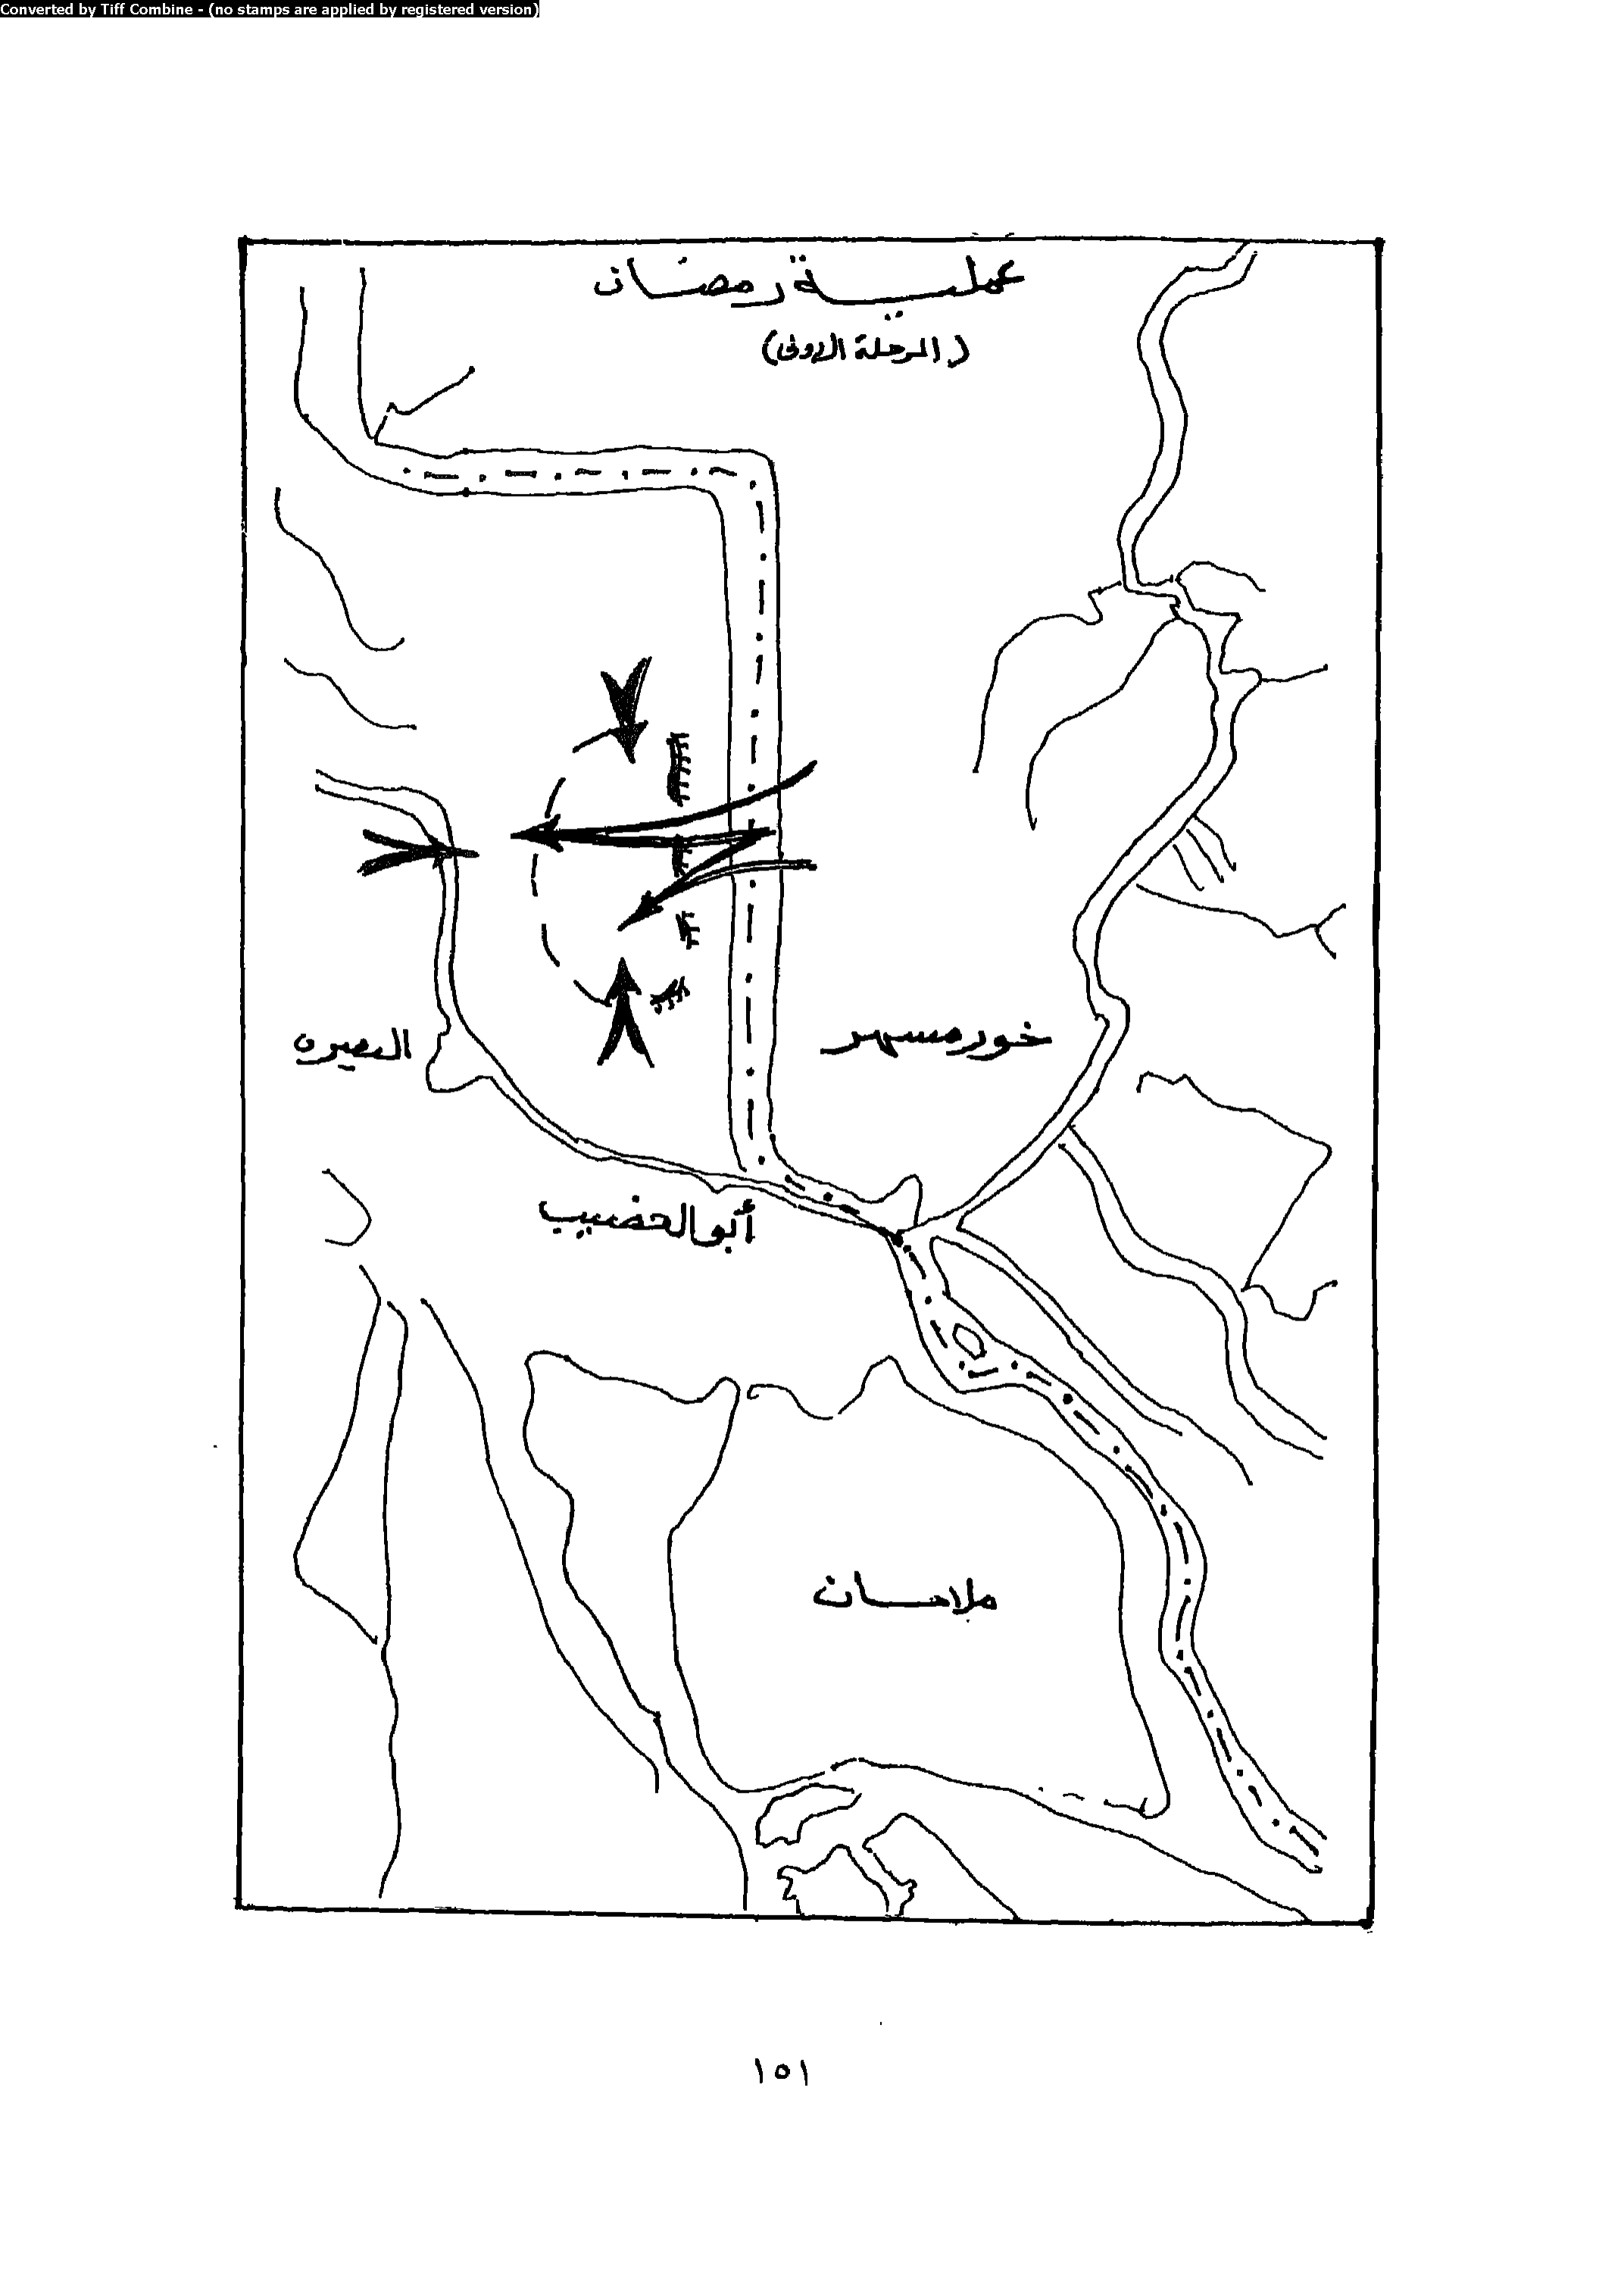 Converted by Tiff Combine - (no stamps are applied by registered version)
عمليـــة رمضـــان
(المرحلة الاولى)
خورمسهر
البصره
أبو الخضيب
ملاحـــات
١٥١